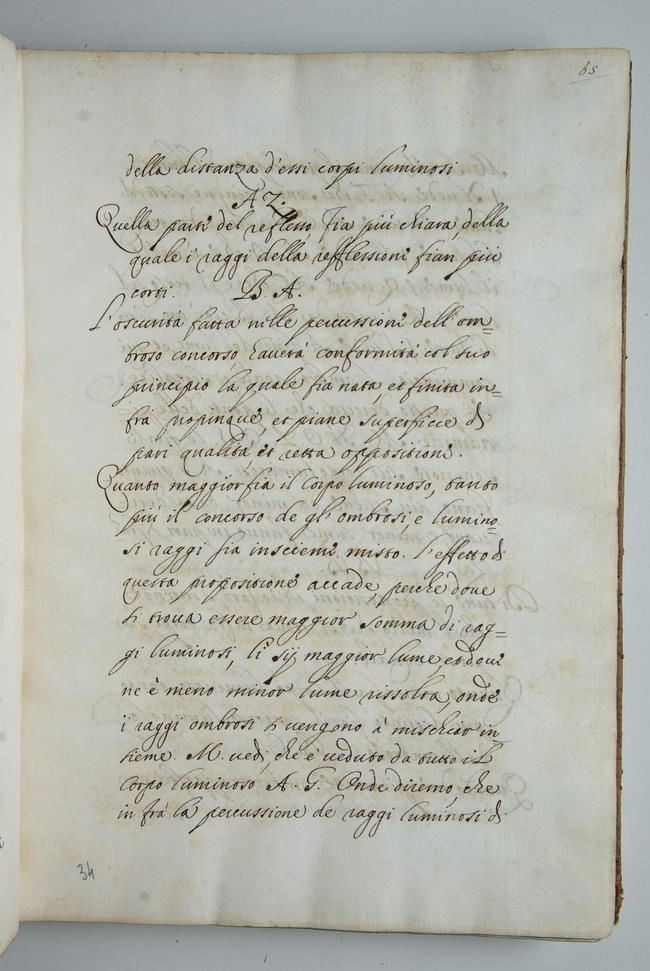 65
della distanza d'essi corpi luminosi
A Z.
Quella parte del reflesso, fia più chiara, della
quale i raggi della refflessione fian più
corti. B. A.
L'oscurità fatta nelle percussioni dell'om=
broso concorso haverà conformità col suo
principio la quale fia nata, et finita in=
frà propinque, et piane superficce di
pari qualità, et retta oppositione.
Quanto maggior fia il corpo luminoso, tanto
più il concorso de gl'ombrosi, e lumino=
si raggi fia insciemi misto. L'effetto di
questa propositione accade, perche dove
si trova essere maggior somma di rag=
gi luminosi, li sij maggior lume et dove
ne è meno minor lume rissolta, onde
i raggi ombrosi si vengono à mischiar in
sieme. M. vedi, che è veduto da tutto il
corpo luminoso A. G. Onde diremo, che
in frà la percussione de raggi luminosi di
34